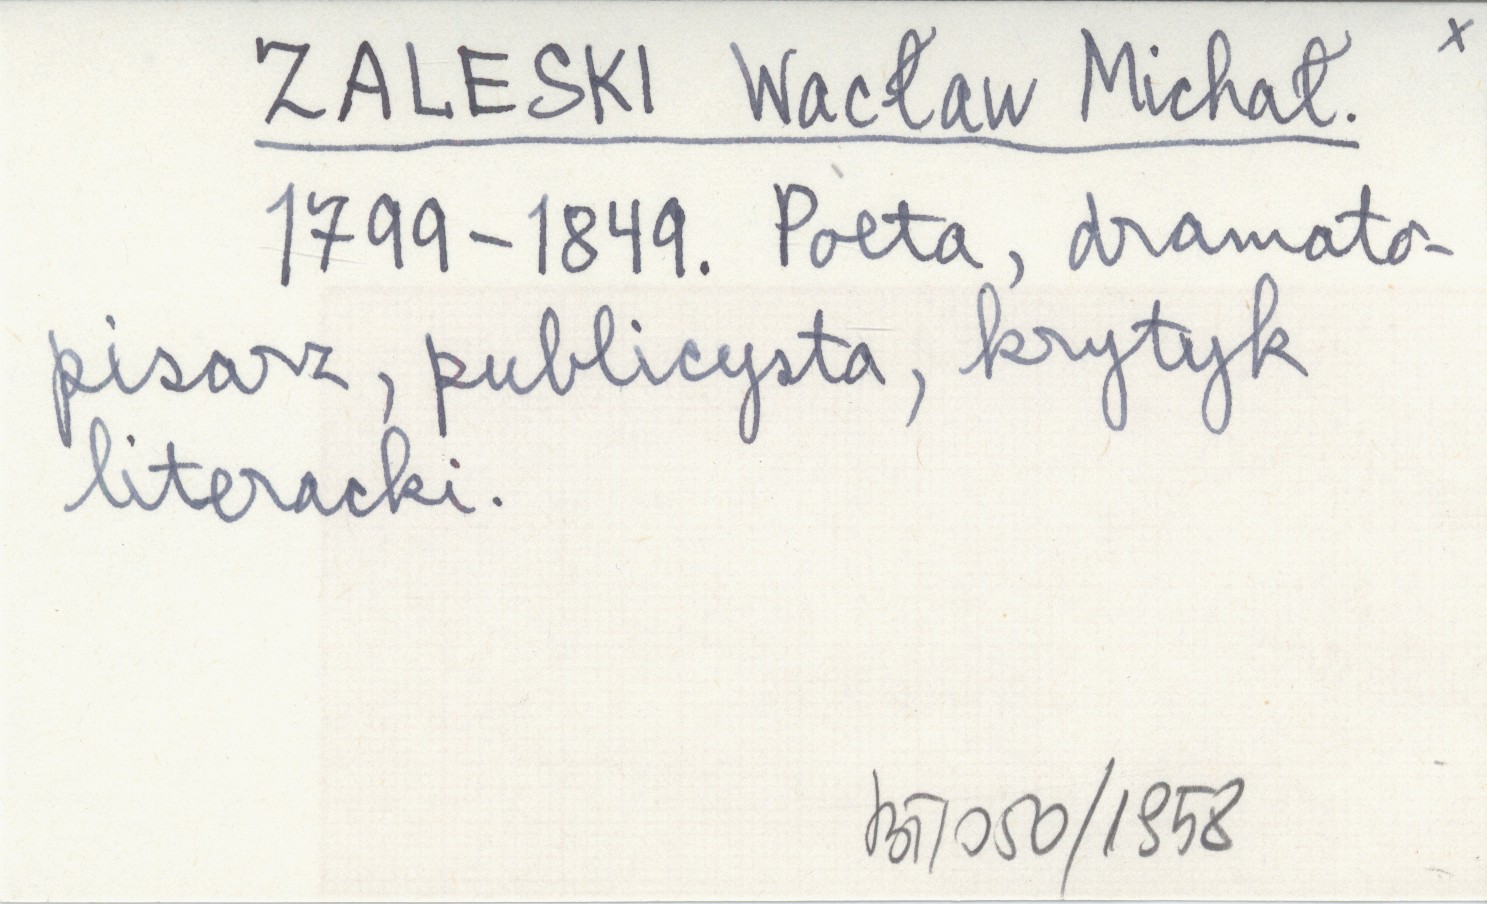 ZALESKI Wacław Michał. x
1799-1849. Poeta, dramato-
pisarz, publicysta, krytyk
literacki.
050/1958